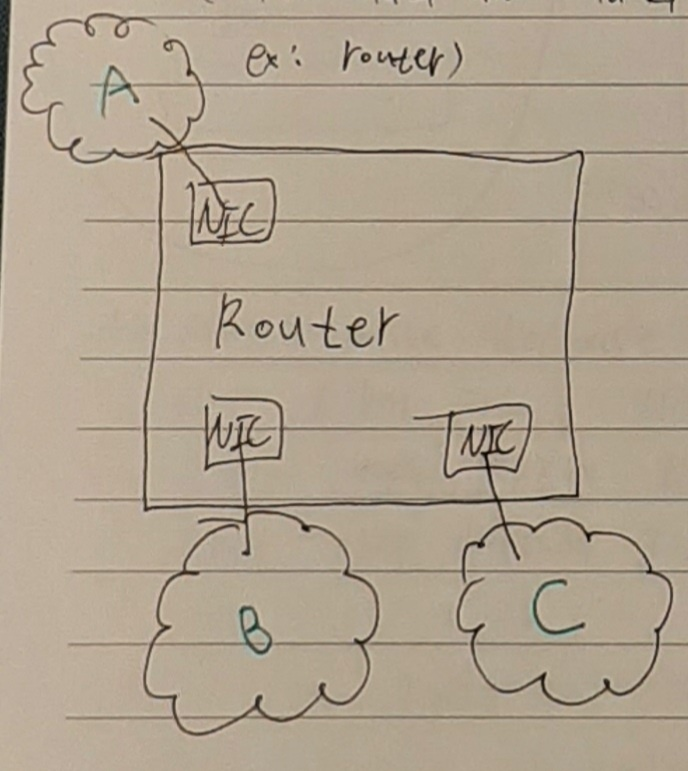 ex: router)
A
NIC
Router
NIC
NIC
B
C